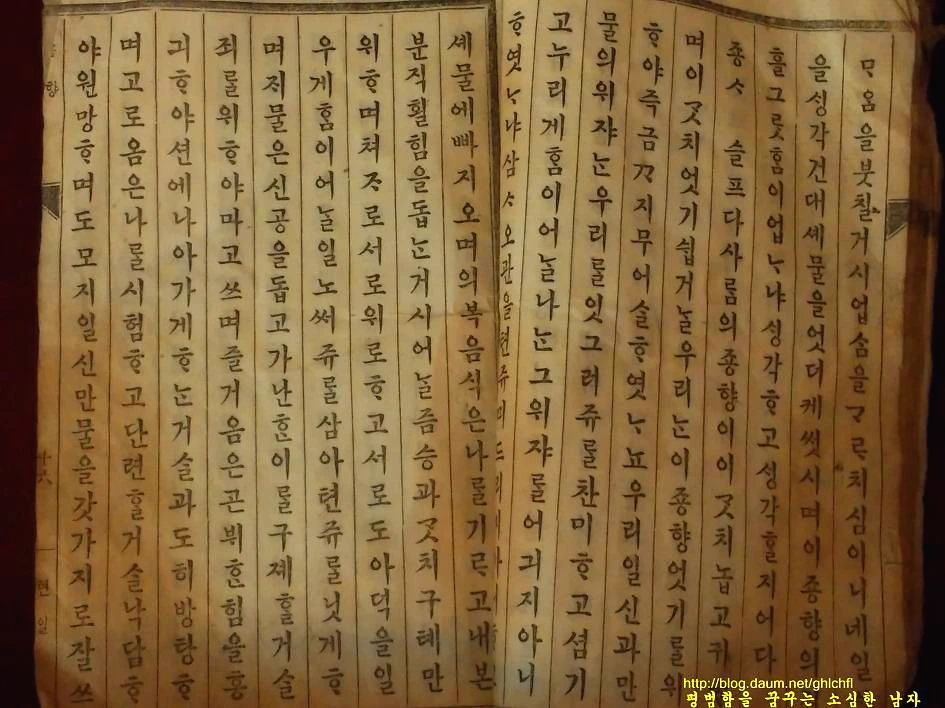 ᄆᆞᄋᆞᆷ을붓칠거시업ᄉᆞᆷ을ᄀᆞᄅᆞ치심이니네일
을ᄉᆡᆼ각건대셰물을엇더케썻시며이종향의
홀그릇ᄒᆞᆷ이업ᄂᆞ냐ᄉᆡᆼ각ᄒᆞ고ᄉᆡᆼ각ᄒᆞᆯ지어다
죵ᄉᆞ 슬프다사ᄅᆞᆷ의죵향이이ᄀᆞᆺ치놉고귀
며이ᄀᆞᆺ치엇기쉽거ᄂᆞᆯ우리ᄂᆞᆫ이죵향엇기ᄅᆞᆯ위
ᄒᆞ야즉금ᄭᆞ지무어슬ᄒᆞ엿ᄂᆞ뇨우리일신과만
물의위쟈ᄂᆞᆫ우리ᄅᆞᆯ잇그러쥬ᄅᆞᆯ찬미ᄒᆞ고셤기
고누리게ᄒᆞᆷ이어ᄂᆞᆯ나ᄂᆞᆫ그위쟈ᄅᆞᆯ어긔지아니
ᄒᆞ엿ᄂᆞ냐삼ᄉᆞ오관을텬쥬
셰물에빠지오며의복음식은나ᄅᆞᆯ기ᄅᆞ고내본
분직휠힘을돕ᄂᆞᆫ거시어ᄂᆞᆯ즘승과ᄀᆞᆺ치구톄만
위ᄒᆞ며쳐ᄌᆞ로서로위로ᄒᆞ고서로도아덕을일
우게ᄒᆞᆷ이어ᄂᆞᆯ일노써쥬ᄅᆞᆯ삼아텬쥬ᄅᆞᆯ닛게ᄒᆞ
며ᄌᆡ물은신공을돕고가난ᄒᆞᆫ이ᄅᆞᆯ구졔ᄒᆞᆯ거슬
죄ᄅᆞᆯ위ᄒᆞ야마고쓰며즐거음은곤뷔ᄒᆞᆫ힘을흥
긔ᄒᆞ야션에나아가게ᄒᆞᄂᆞᆫ거슬과도히방탕ᄒᆞ
며고로옴은나ᄅᆞᆯ시험ᄒᆞ고단련ᄒᆞᆯ거슬낙담ᄒᆞ
야원망ᄒᆞ며도모지일신만물을갓가지로잘쓰
향
十六
현일
http://blog.daum.net/ghlchfl
평범함을 꿈꾸는 소심한 남자